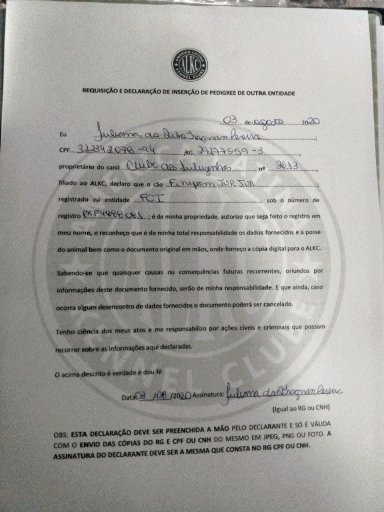 ALKC
REQUISIÇÃO E DECLARAÇÃO DE INSERÇÃO DE PEDIGREE DE OUTRA ENTIDADE
03 de agosto 2020
Eu Juliana da
CPF RG
proprietário do canil Clube dos nº 3613
filiado ao ALKC, declaro que o cão
registrado na entidade FCI sob o número de
registro , é de minha propriedade, autorizo que seja feito o registro em
meu nome, e reconheço que é de minha total responsabilidade os dados fornecidos e a posse
do animal bem como o documento original em mãos, onde forneço a cópia digital para o ALKC.
Sabendo-se que quaisquer causas ou consequências futuras recorrentes, oriundos por
informações deste documento fornecido, serão de minha responsabilidade. E que ainda, caso
ocorra algum desencontro de dados fornecidos o documento poderá ser cancelado.
Tenho ciência dos meus atos e me responsabilizo por ações cíveis e criminais que possam
recorrer sobre as informações aqui declaradas.
O acima descrito é verdade e dou fé
Data 03 /08 /2020 Assinatura: Juliana da
(Igual ao RG ou CNH)
OBS: ESTA DECLARAÇÃO DEVE SER PREENCHIDA A MÃO PELO DECLARANTE E SÓ É VÁLIDA
COM O ENVIO DAS CÓPIAS DO RG E CPF OU CNH DO MESMO EM JPEG, PNG OU FOTO. A
ASSINATURA DO DECLARANTE DEVE SER A MESMA QUE CONSTA NO RG CPF OU CNH.